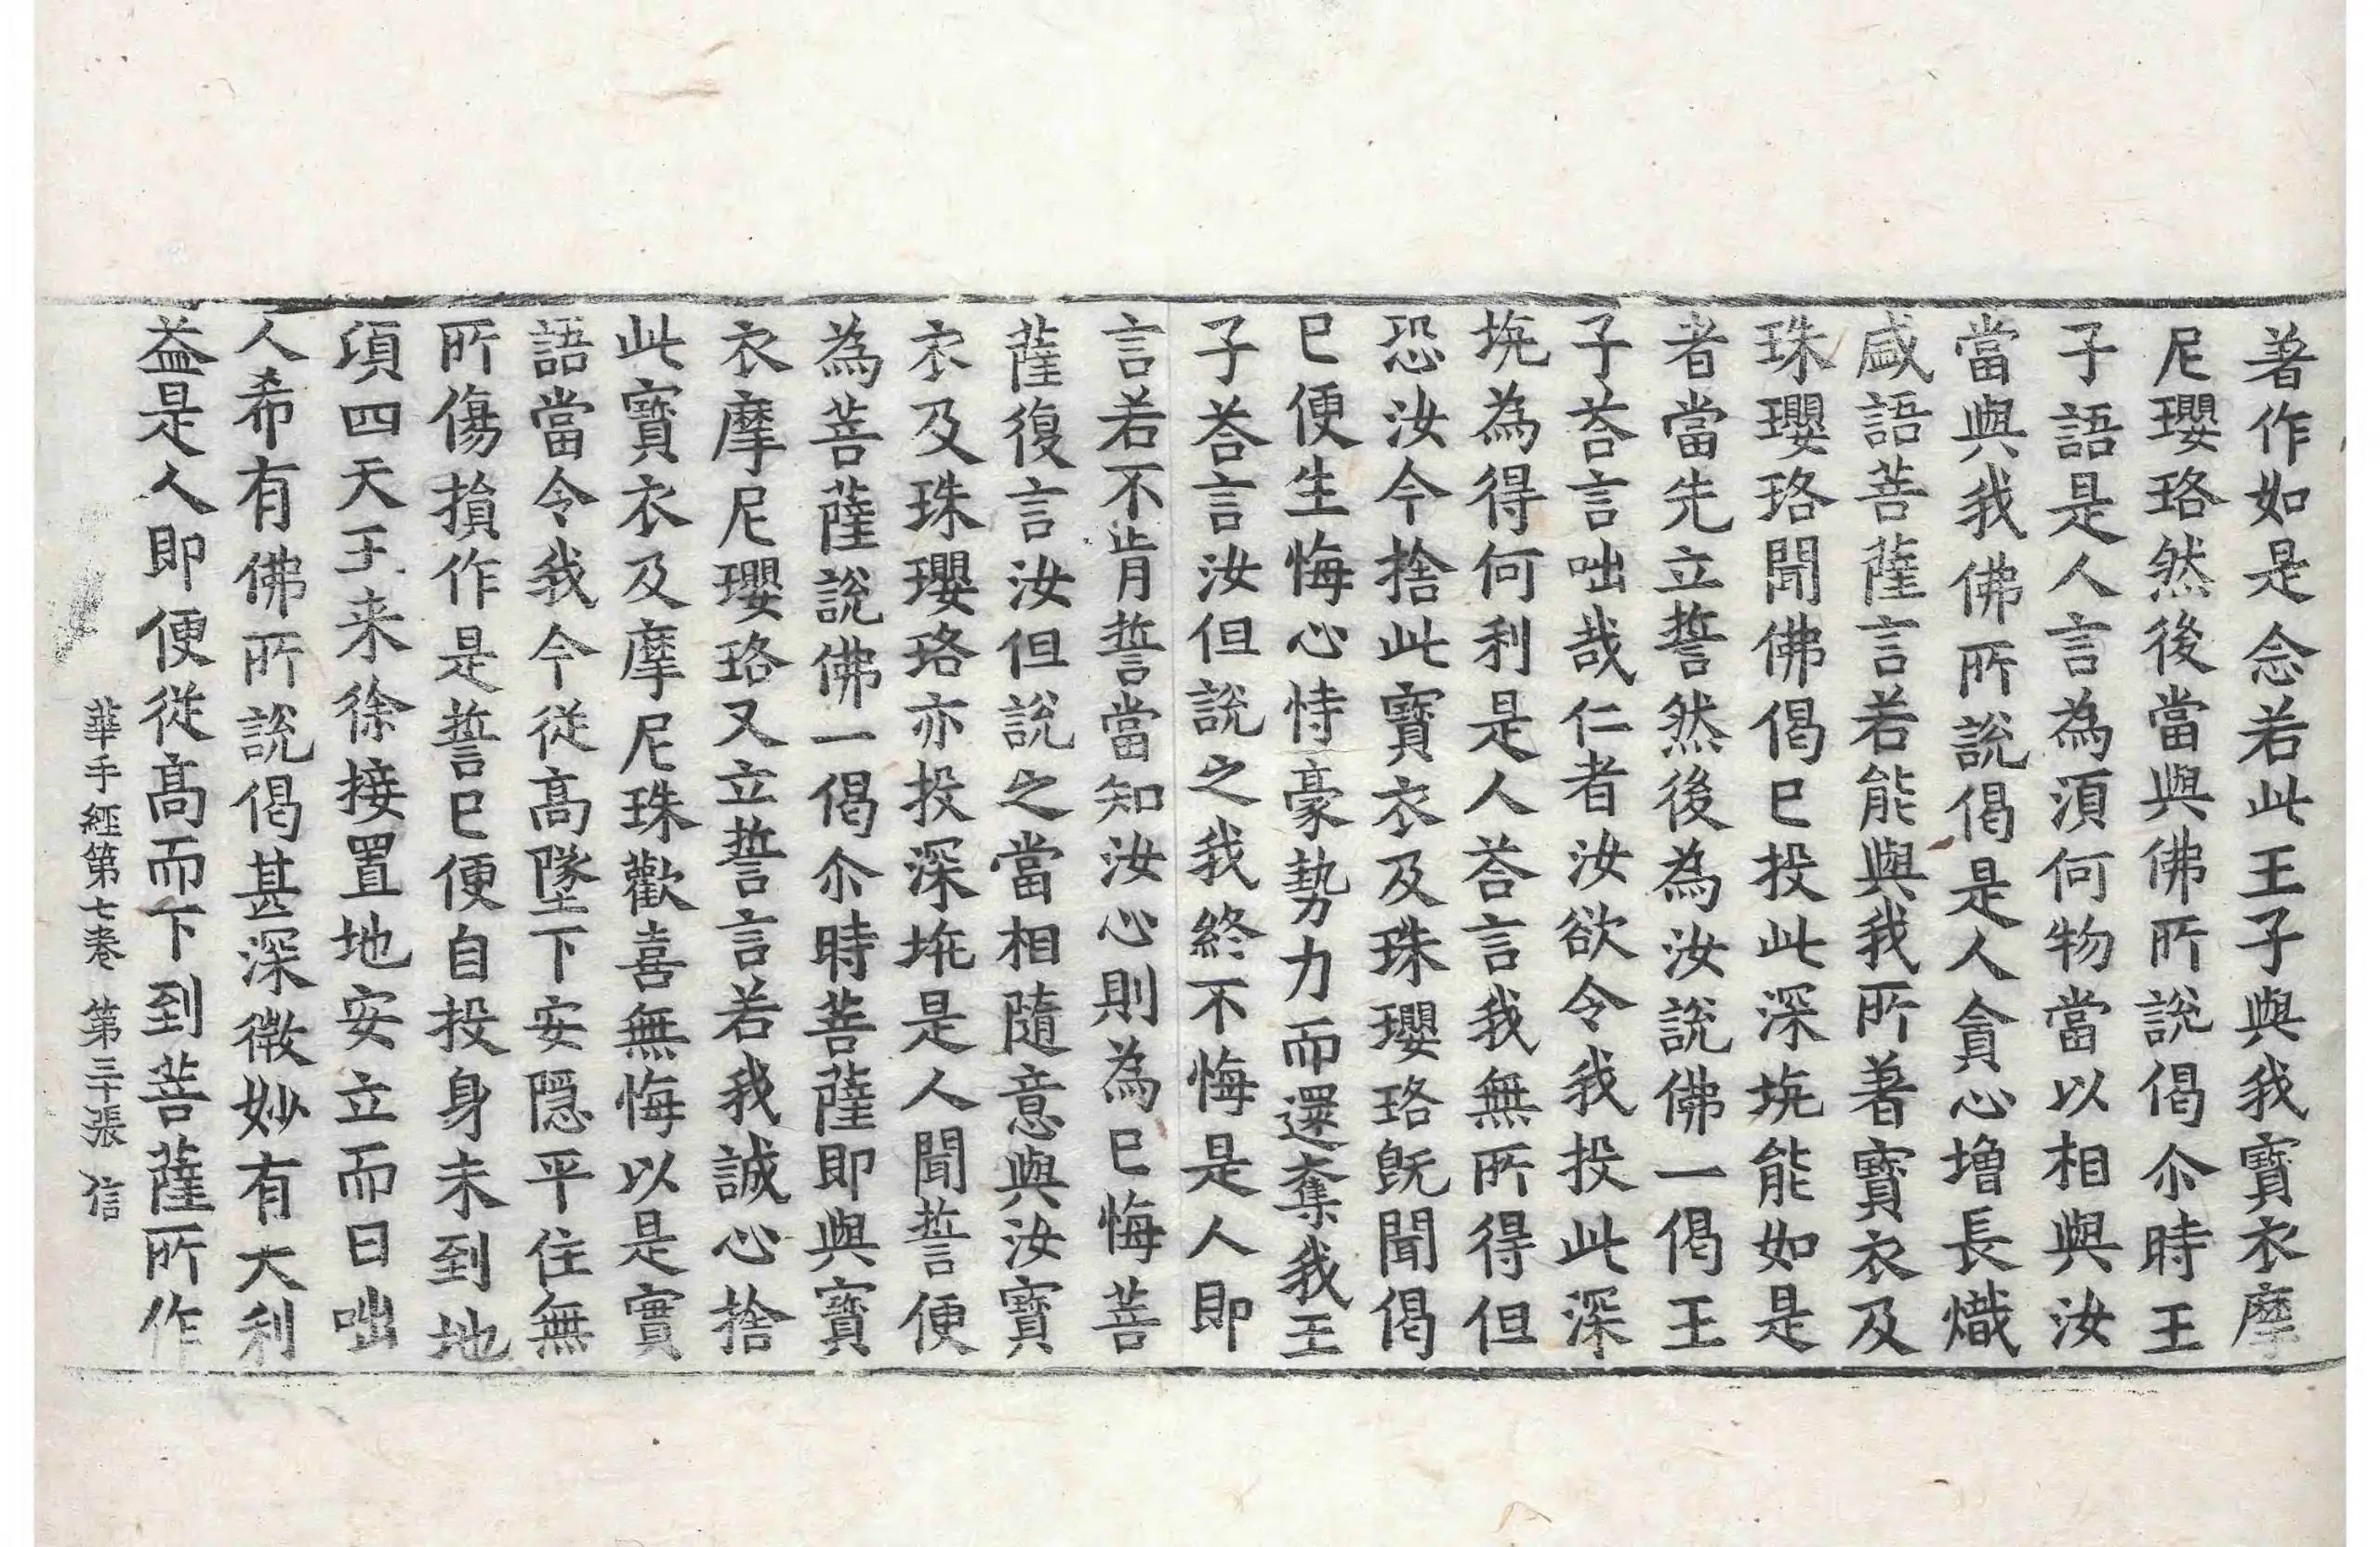 著作如是念若此王子與我寶衣摩
尼瓔珞然後當與佛所說偈尒時王
子語是人言為湏何物當以相與汝
當與我佛所說偈是人貪心增長熾
咸語菩薩言若能與我所著寶衣及
珠瓔珞聞佛偈已投此深坑能如是
者當先立誓然後為汝說佛一偈王
子荅言咄哉仁者汝欲令我投此深
坑為得何利是人荅言我無所得但
恐汝今捨此寶衣及珠瓔珞旣聞偈
已便生悔心恃豪勢力而還奪我王
子荅言汝但說之我終不悔是人即
言若不肯誓當知汝心則為已悔菩
薩復言汝但說之當相隨意與汝寶
衣及珠瓔珞亦投深坑是人聞誓便
為菩薩說佛一偈尒時菩薩即與寶
衣摩尼瓔珞又立誓言若我誠心捨
此寶衣及摩尼珠歡喜無悔以是實
語當令我今從高墜下安隱平住無
所傷損作是誓已便自投身未到地
頃四天王来徐接置地安立而曰咄
人希有佛所說偈甚深微妙有大利
益是人即便從高而下到菩薩所作
華手經第七卷 第三十張 信